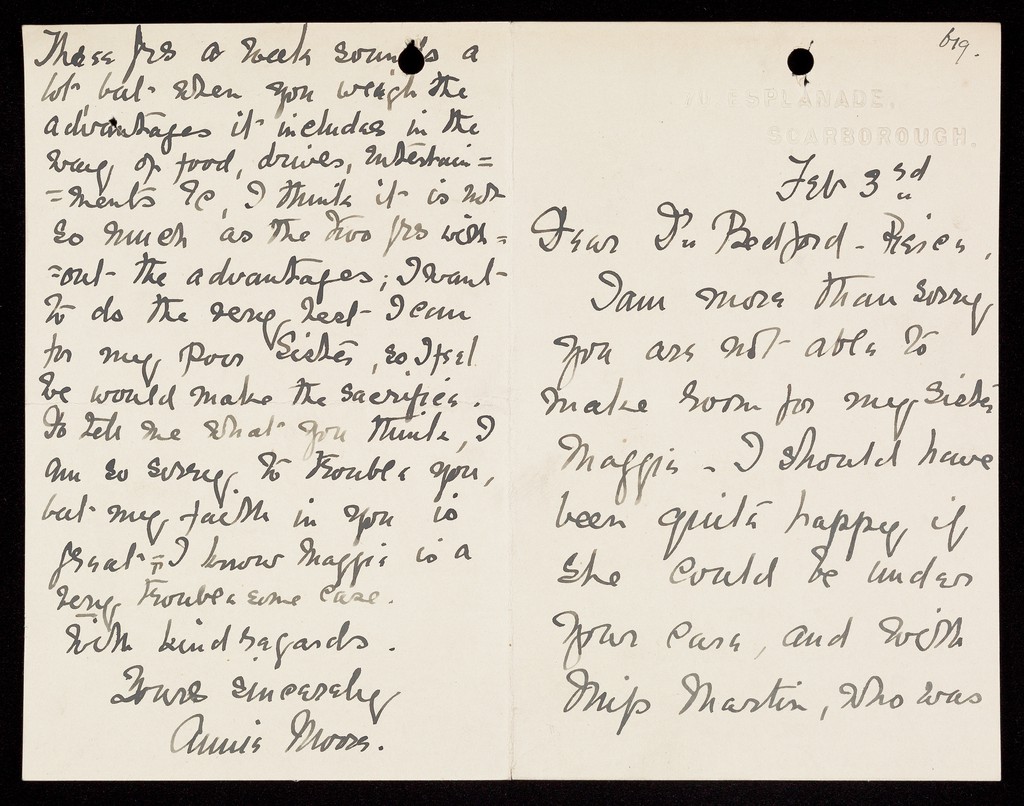 Three gns a week sounds a
lot, but when you weigh the
advantages it includes in the
way of food, drives, Entertain=
=ments &c, I think it is not
so much as the two gns with=
=out the advantages; I want
to do the very best I can
for my poor Sister, so I feel
we would make the sacrifice.
Do tell me what you think, I
am so sorry to trouble you,
but my faith in you is
great = I know Maggie is a
very troublesome case.
With kind regards.
Yours sincerely
Annie Moore.
619.
ESPLANADE,
SCARBOROUGH.
Feb 3rd
Dear Dr Bedford - Pierce,
I am more than sorry
you are not able to
make room for my Sister
Maggie - I should have
been quite happy if
she could be under
your care, and with
Miss Martin, who was